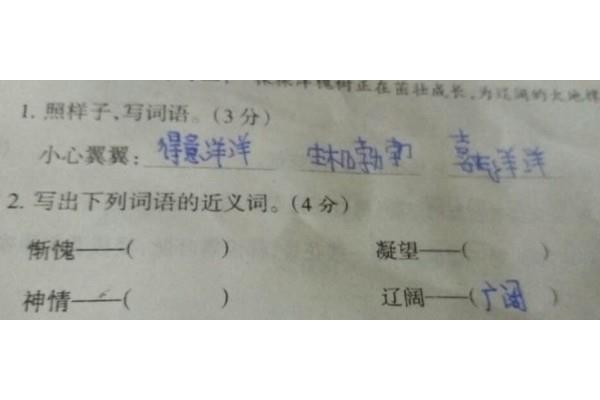 正在茁壮成长,为辽阔的大地
1. 照样子,写词语。(3分)
小心翼翼: 得意洋洋 生机勃勃 喜气洋洋
2. 写出下列词语的近义词。(4分)
惭愧——( ) 凝望——( )
神情——( ) 辽阔——(广阔)